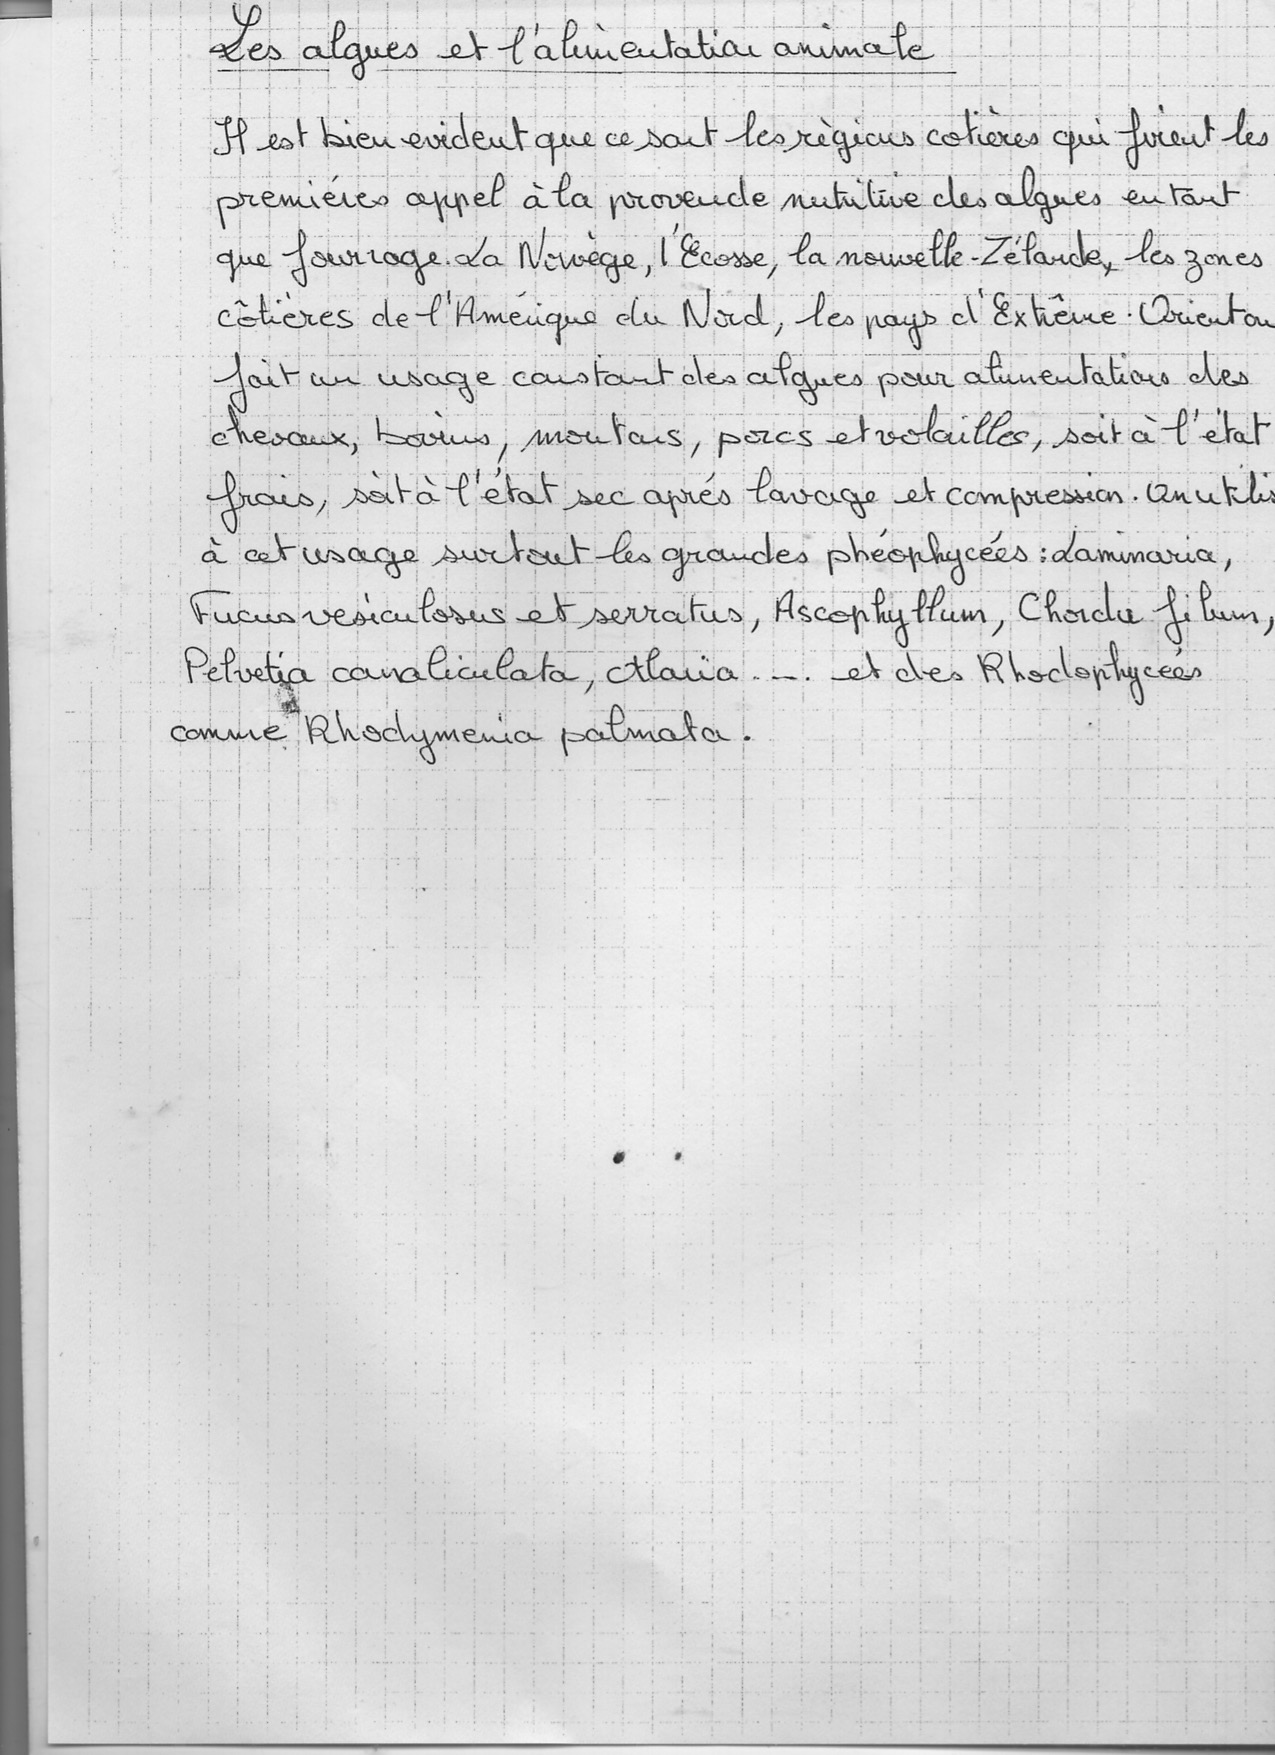 Les algues et l'alimentation animale
Il est bien evident que ce sont les règions cotières qui firent les
premiéres appel à la provende nutritive des algues en tant
que fourrage. La Norvège, l'Ecosse, la nouvelle-Zélande, les zones
côtières de l'Amérique du Nord, les pays d'Extrême-Orient on
fait un usage constant des algues pour alimentations des
chevaux, bovins, moutons, porcs et volailles, soit à l'état
frais, soit à l'état sec aprés lavage et compression. On utilis
à cet usage surtout les grandes phéophycées : Laminaria,
Fucus vesiculosus et serratus, Ascophyllum, Chorda filum,
Pelvetia canaliculata, Alaria .... et des Rhodophycées
comme Rhodymenia palmata.